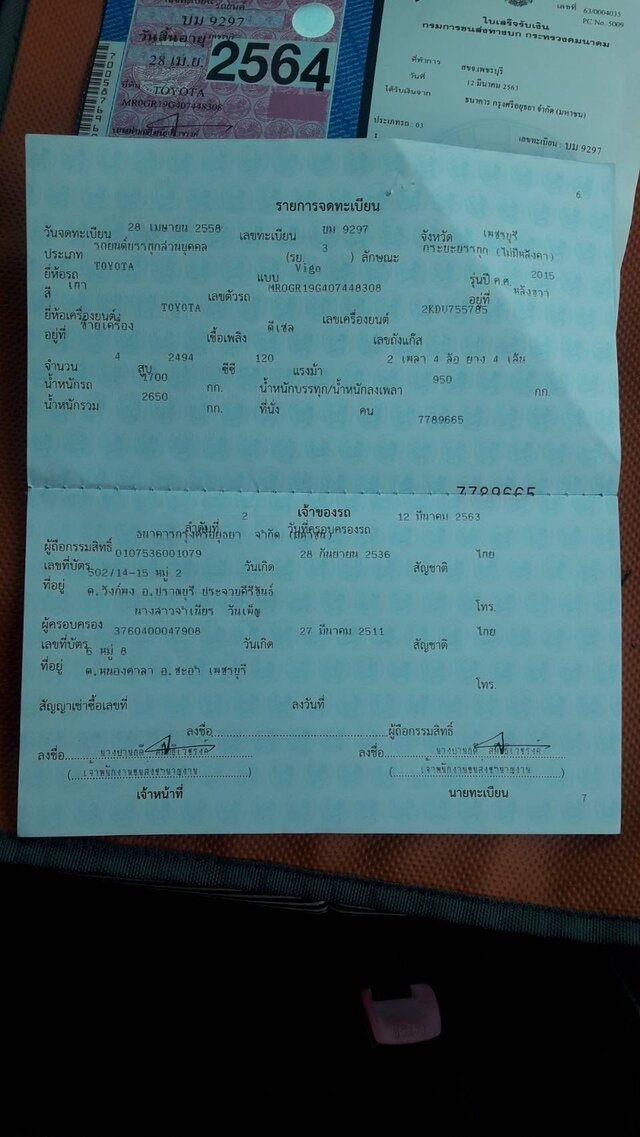 บม 9297
วันสิ้นอายุ
28 เม.ย. 2564
TOYOTA
MR0GR19G407448308
เลขที่ 63/0004035
PC No. 5009
ใบเสร็จรับเงิน
กรมการขนส่งทางบก กระทรวงคมนาคม
ที่ทำการ สขจ.เพชรบุรี
วันที่ 12 มีนาคม 2563
ได้รับเงินจาก ธนาคาร กรุงศรีอยุธยา จำกัด (มหาชน)
ประเภทรถ : 03 เลขทะเบียน : บม 9297
6
รายการจดทะเบียน
วันจดทะเบียน 28 เมษายน 2558 เลขทะเบียน บม 9297 จังหวัด เพชรบุรี
ประเภท รถยนต์บรรทุกส่วนบุคคล (รย. 3 ) ลักษณะ กระบะบรรทุก (ไม่มีหลังคา)
ยี่ห้อรถ TOYOTA แบบ Vigo รุ่นปี ค.ศ. 2015
สี เทา เลขตัวรถ MR0GR19G407448308 อยู่ที่ หลังขวา
ยี่ห้อเครื่องยนต์ TOYOTA เลขเครื่องยนต์ 2KDU755785
อยู่ที่ ซ้ายเครื่อง เชื้อเพลิง ดีเซล เลขถังแก๊ส
จำนวน 4 สูบ 2494 ซีซี 120 แรงม้า 2 เพลา 4 ล้อ ยาง 4 เส้น
น้ำหนักรถ 1700 กก. น้ำหนักบรรทุก/น้ำหนักลงเพลา 950 กก.
น้ำหนักรวม 2650 กก. ที่นั่ง คน
7789665
7789665
เจ้าของรถ
ลำดับที่ 2 วันที่ครอบครองรถ 12 มีนาคม 2563
ผู้ถือกรรมสิทธิ์ ธนาคารกรุงศรีอยุธยา จำกัด (มหาชน)
เลขที่บัตร 0107536001079 วันเกิด 28 กันยายน 2536 สัญชาติ ไทย
ที่อยู่ 502/14-15 หมู่ 2
ต.วังก์พง อ.ปราณบุรี ประจวบคีรีขันธ์
โทร.
ผู้ครอบครอง นางสาวจำเนียร วันเพ็ญ
เลขที่บัตร 3760400047908 วันเกิด 27 มีนาคม 2511 สัญชาติ ไทย
ที่อยู่ 6 หมู่ 8
ต.หนองศาลา อ.ชะอำ เพชรบุรี
โทร.
สัญญาเช่าซื้อเลขที่ ลงวันที่
ลงชื่อ ผู้ถือกรรมสิทธิ์
ลงชื่อ ลงชื่อ
(เจ้าพนักงานขนส่งชำนาญงาน) (เจ้าพนักงานขนส่งชำนาญงาน)
เจ้าหน้าที่ นายทะเบียน
7